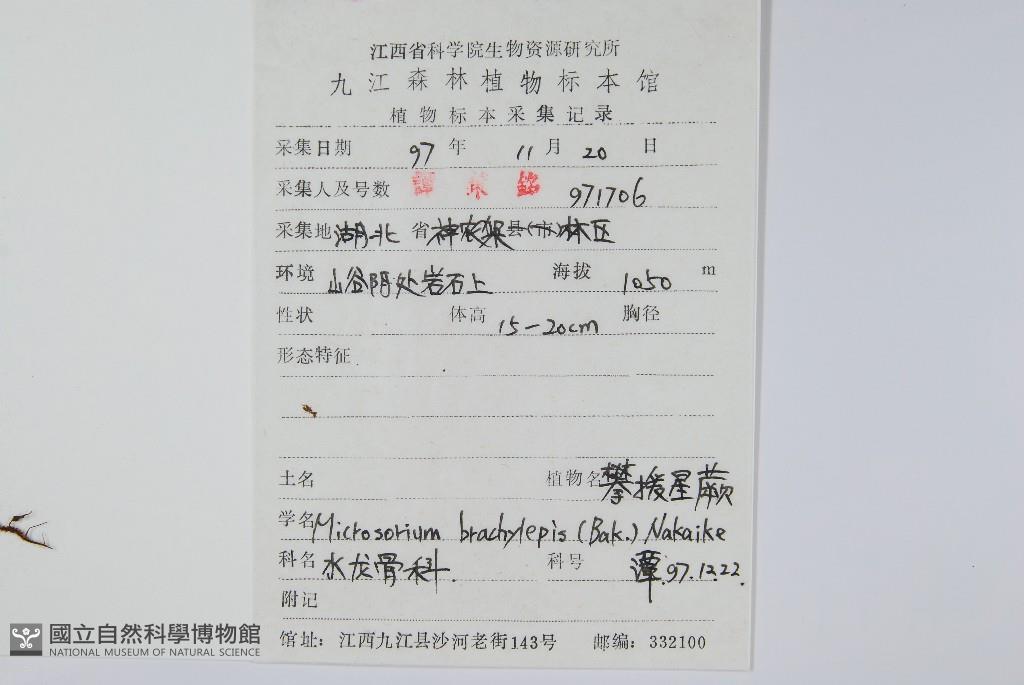 江西省科学院生物资源研究所
九江森林植物标本馆
植物标本采集记录
采集日期 97 年 11 月 20 日
采集人及号数 譚策銘 971706
采集地 湖北 省 神农架县(市)林区
环境 山谷阴处岩石上 海拔 1050 m
性状 体高 15-20cm 胸径
形态特征
土名 植物名 攀援星蕨
学名 Microsorium brachylepis (Bak.) Nakaike
科名 水龙骨科. 科号 潭.97.12.22.
附记
馆址：江西九江县沙河老街143号 邮编：332100
國立自然科學博物館
NATIONAL MUSEUM OF NATURAL SCIENCE